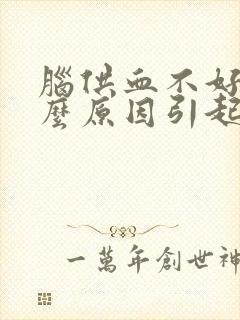 腦供血不好
麼原因引起
一萬年創世神